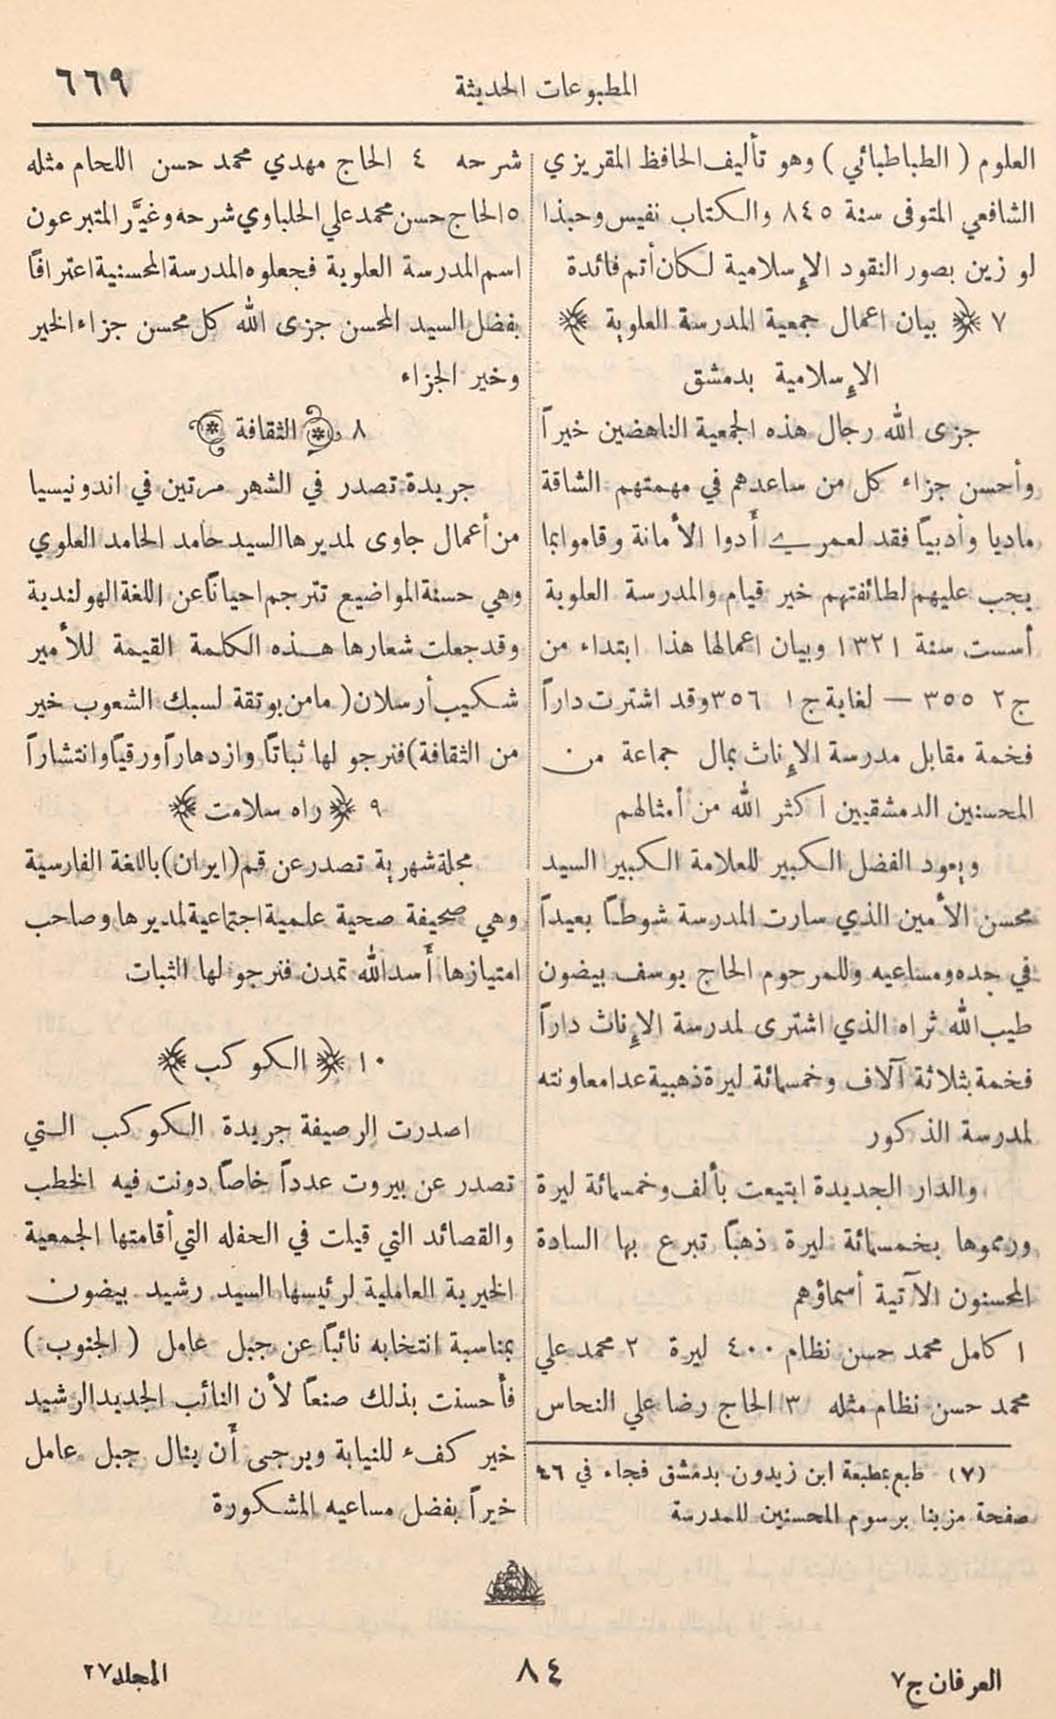 المطبوعات الحديثة
٦٦٩
العلوم ( الطباطبائي ) وهو تأليف الحافظ المقريزي
الشافعي المتوفى سنة ٨٤٥ والكتاب نفيس وحبذا
لو زين بصور النقود الإسلامية لكان أتم فائدة
٧ ﴿ بيان اعمال جمعية المدرسة العلوية ﴾
الإسلامية بدمشق
جزى الله رجال هذه الجمعية الناهضين خيراً
وأحسن جزاء كل من ساعدهم في مهمتهم الشاقة
ماديا وأدبياً فقد لعمري أدوا الأمانة وقاموا بما
يجب عليهم لطائفتهم خير قيام والمدرسة العلوية
أسست سنة ١٣٢١ وبيان اعمالها هذا ابتداء من
ج ٢ ٣٥٥ — لغاية ج ١ ٣٥٦ وقد اشترت داراً
فخمة مقابل مدرسة الإناث بمال جماعة من
المحسنين الدمشقيين اكثر الله من أمثالهم
ويعود الفضل الكبير للعلامة الكبير السيد
محسن الأمين الذي سارت المدرسة شوطاً بعيداً
في جده ومساعيه وللمرحوم الحاج يوسف بيضون
طيب الله ثراه الذي اشترى لمدرسة الإناث داراً
فخمة بثلاثة آلاف وخمسمائة ليرة ذهبية عدا معاونته
لمدرسة الذكور
والدار الجديدة ابتيعت بألف وخمسمائة ليرة
ورمموها بخمسمائة ليرة ذهباً تبرع بها السادة
المحسنون الآتية أسماؤهم
١ كامل محمد حسن نظام ٤٠٠ ليرة ٢ محمد علي
محمد حسن نظام مثله ٣ الحاج رضا علي النحاس
(٧) طبع بمطبعة ابن زيدون بدمشق فجاء في ٤٦
صفحة مزينا برسوم المحسنين للمدرسة
شرحه ٤ الحاج مهدي محمد حسن اللحام مثله
٥ الحاج حسن محمد علي الحلباوي شرحه وغيَّر المتبرعون
اسم المدرسة العلوية فجعلوه المدرسة المحسنية اعترافاً
بفضل السيد المحسن جزى الله كل محسن جزاء الخير
وخير الجزاء
٨ الثقافة
جريدة تصدر في الشهر مرتين في اندونيسيا
من أعمال جاوى لمديرها السيد حامد الحامد العلوي
وهي حسنة المواضيع تترجم احياناً عن اللغة الهولندية
وقد جعلت شعارها هذه الكلمة القيمة للأمير
شكيب أرسلان ( ما من بوتقة لسبك الشعوب خير
من الثقافة ) فنرجو لها ثباتاً وازدهاراً ورقياً وانتشاراً
٩ ﴿ راه سلامت ﴾
مجلة شهرية تصدر عن قم ( ايران ) باللغة الفارسية
وهي صحيفة صحية علمية اجتماعية لمديرها وصاحب
امتيازها أسد الله تمدن فنرجو لها الثبات
١٠ ﴿ الكوكب ﴾
اصدرت الرصيفة جريدة الكوكب التي
تصدر عن بيروت عدداً خاصاً دونت فيه الخطب
والقصائد التي قيلت في الحفله التي أقامتها الجمعية
الخيرية العاملية لرئيسها السيد رشيد بيضون
بمناسبة انتخابه نائباً عن جبل عامل ( الجنوب )
فأحسنت بذلك صنعاً لأن النائب الجديد الرشيد
خير كفء للنيابة ويرجى أن ينال جبل عامل
خيراً بفضل مساعيه المشكورة
العرفان ج٧
٨٤
المجلد ٢٧